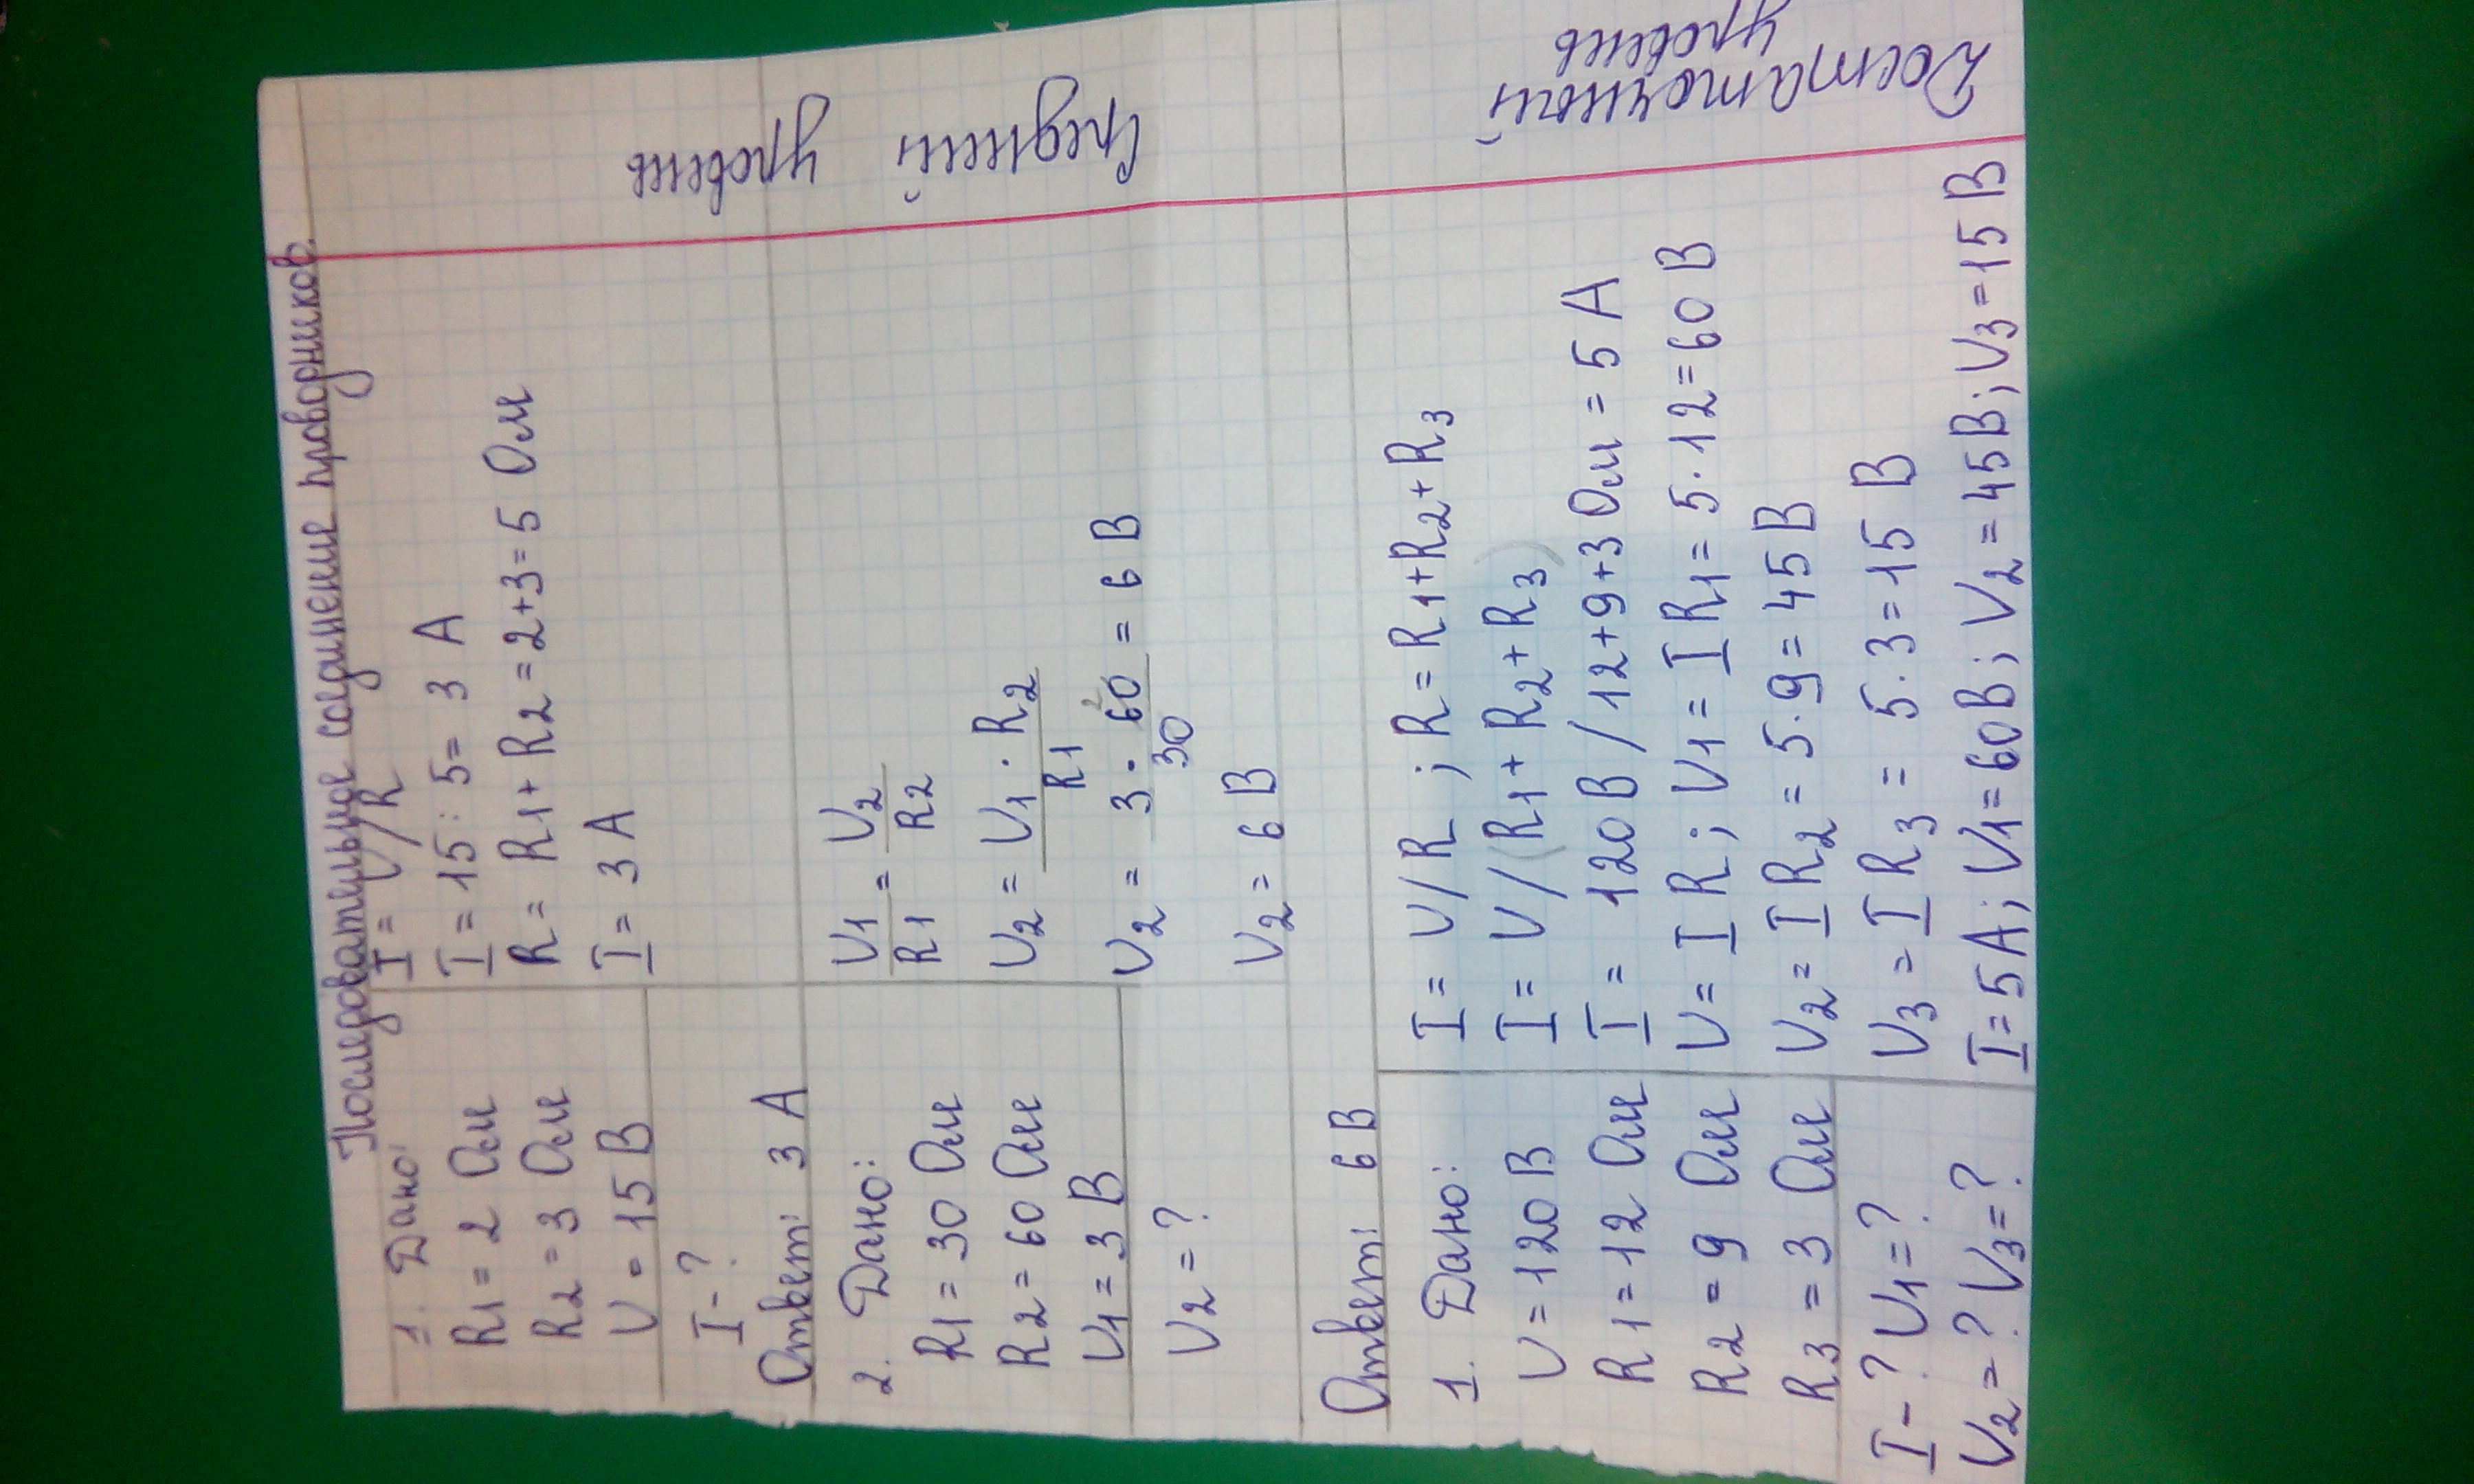 Последовательное соединение проводников.
1. Дано:
R1 = 2 Ом
R2 = 3 Ом
U = 15 В
I - ?
I = U/R
I = 15 : 5 = 3 А
R = R1 + R2 = 2+3 = 5 Ом
I = 3 А
Ответ: 3 А
Средний
уровень
2. Дано:
R1 = 30 Ом
R2 = 60 Ом
U1 = 3 В
U2 = ?
U1/R1 = U2/R2
U2 = U1 · R2 / R1
U2 = 3 · 60 2 / 30 = 6 В
U2 = 6 В
Ответ: 6 В
Достаточный
уровень
1. Дано:
U = 120 В
R1 = 12 Ом
R2 = 9 Ом
R3 = 3 Ом
I - ? U1 = ?
U2 = ? U3 = ?
I = U/R ; R = R1+R2+R3
I = U/(R1 + R2 + R3)
I = 120 В / 12+9+3 Ом = 5 А
U = I R ; U1 = I R1 = 5 · 12 = 60 В
U2 = I R2 = 5 · 9 = 45 В
U3 = I R3 = 5 · 3 = 15 В
I = 5 А; U1 = 60 В; U2 = 45 В; U3 = 15 В